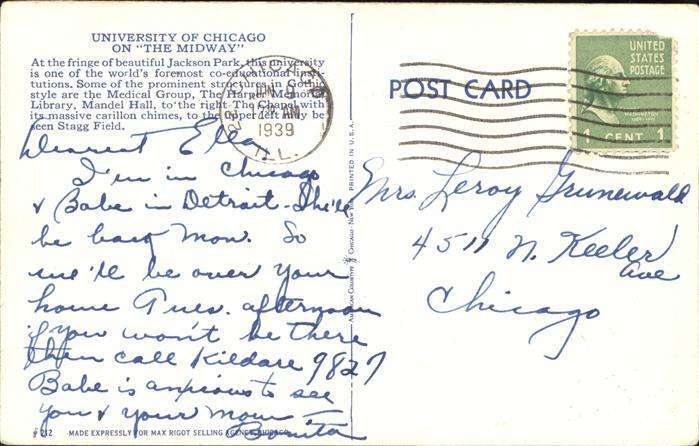 UNIVERSITY OF CHICAGO
ON "THE MIDWAY"
At the fringe of beautiful Jackson Park, this university
is one of the world's foremost co-educational insti-
tutions. Some of the prominent structures in Gothic
style are the Medical Group, The Harper Memorial
Library, Mandel Hall, to the right The Chapel with
its massive carillon chimes, to the upper left may be
seen Stagg Field.
CHICAGO
1939
ILL.
Dearest Ella
I'm in Chicago
& Babe in Detroit. She'll
be back Mon. So
we'll be over your
home Tues. afternoon
if you won't be there
then call Kildare 9827
Babe is anxious to see
you & your mom
Bonita
# 212 MADE EXPRESSLY FOR MAX RIGOT SELLING AGENCY, CHICAGO
PRINTED IN U.S.A.
POST CARD
UNITED
STATES
POSTAGE
WASHINGTON
1 CENT 1
Mrs. Leroy Grunewald
4511 N. Keeler
Ave
Chicago